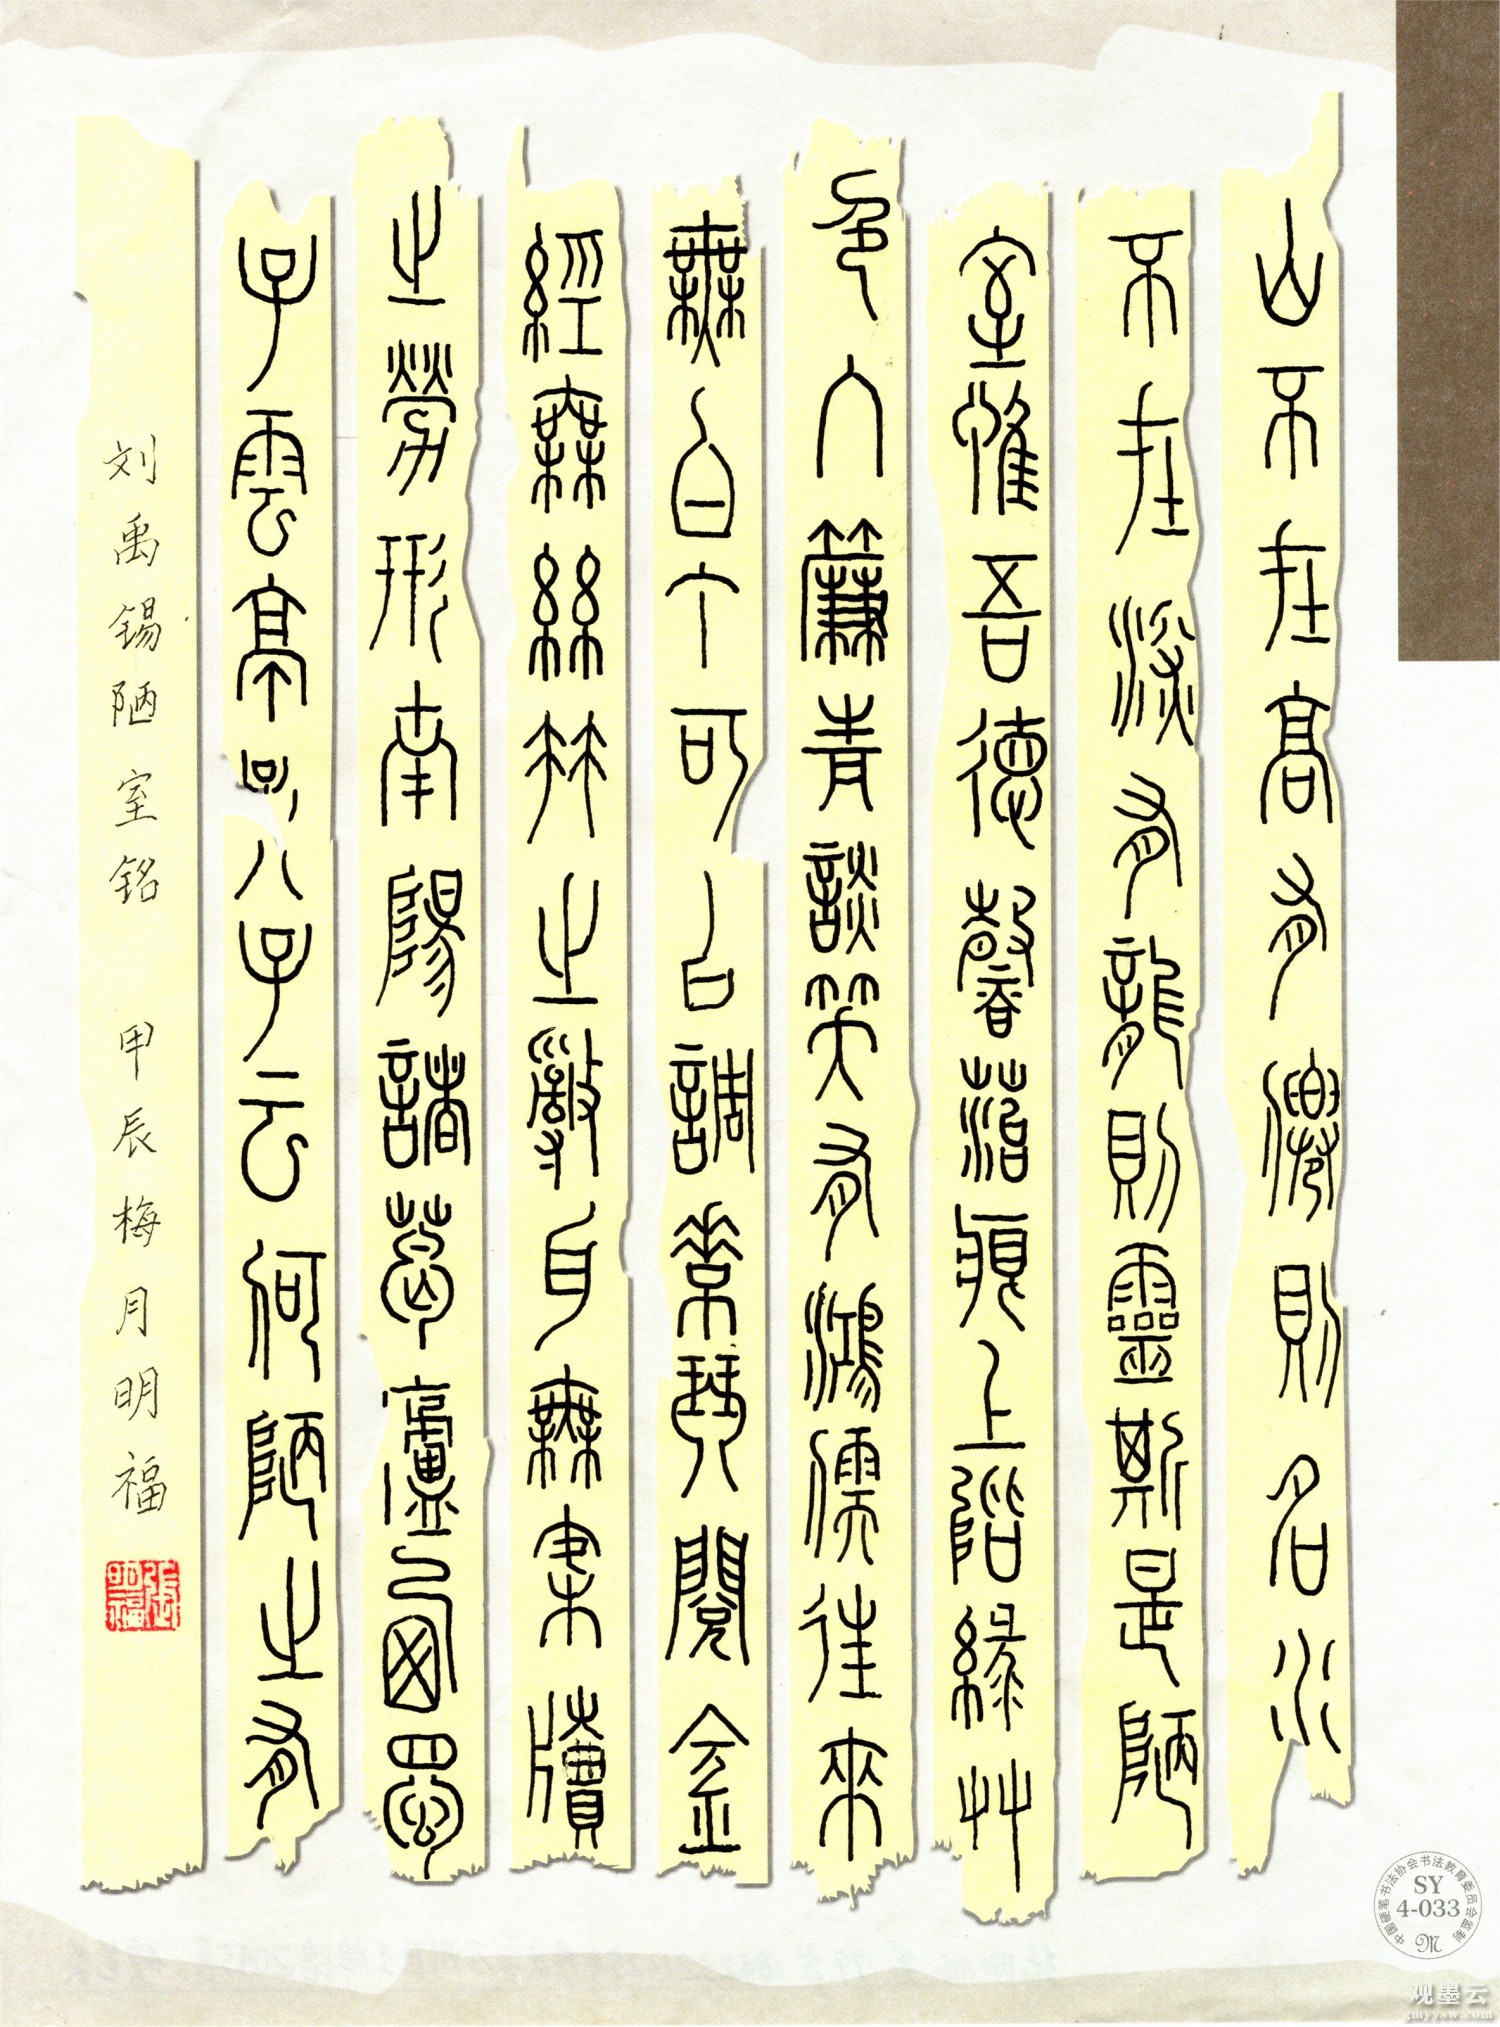 山不在高有僊則名水
不在深有龍則靈斯是陋
室惟吾德馨菭痕上階綠艸
色入簾青談笑有鴻儒往來
無白丁可㠯調素琴閱金
經無絲竹之亂耳無案牘
之勞形南陽諸葛廬西蜀
子雲亭孔子云何陋之有
刘禹锡陋室铭 甲辰梅月明福
张明福
中国硬笔书法协会书法教育委员会监制
SY
4-033
M
观墨云
jmyysw.com